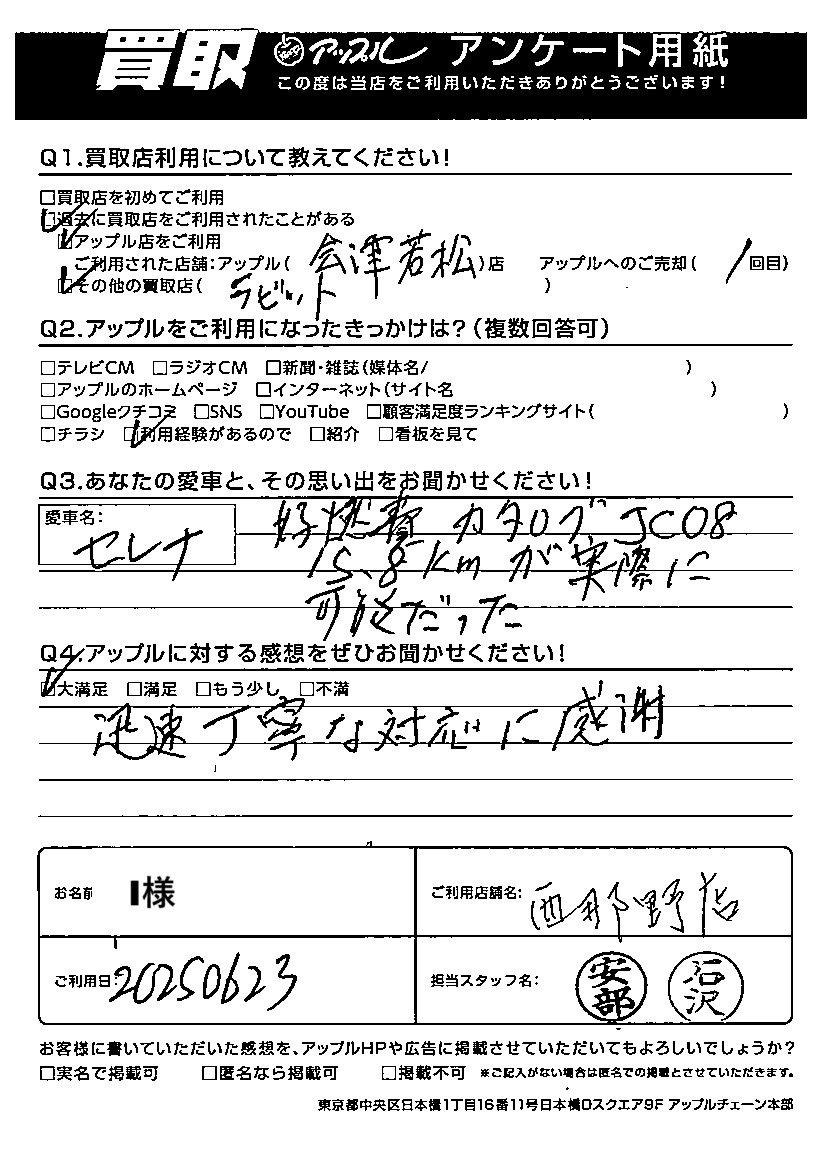 買取 アップル アンケート用紙
この度は当店をご利用いただきありがとうございます!
Q1.買取店利用について教えてください!
□買取店を初めてご利用
☑過去に買取店をご利用されたことがある
☑アップル店をご利用
ご利用された店舗:アップル( 会津若松 )店 アップルへのご売却( 1 回目)
☑その他の買取店( ラビット )
Q2.アップルをご利用になったきっかけは?(複数回答可)
□テレビCM □ラジオCM □新聞・雑誌(媒体名/ )
□アップルのホームページ □インターネット(サイト名 )
□Googleクチコミ □SNS □YouTube □顧客満足度ランキングサイト( )
□チラシ ☑利用経験があるので □紹介 □看板を見て
Q3.あなたの愛車と、その思い出をお聞かせください!
愛車名: セレナ
好燃費 カタログJC08
15.8kmが実際に
可能だった
Q4.アップルに対する感想をぜひお聞かせください!
☑大満足 □満足 □もう少し □不満
迅速丁寧な対応に感謝
お名前 I様 ご利用店舗名: 西那野店
ご利用日: 20250623 担当スタッフ名: 安部 石沢
お客様に書いていただいた感想を、アップルHPや広告に掲載させていただいてもよろしいでしょうか?
□実名で掲載可 □匿名なら掲載可 □掲載不可 ※ご記入がない場合は匿名での掲載とさせていただきます。
東京都中央区日本橋1丁目16番11号日本橋Dスクエア9F アップルチェーン本部